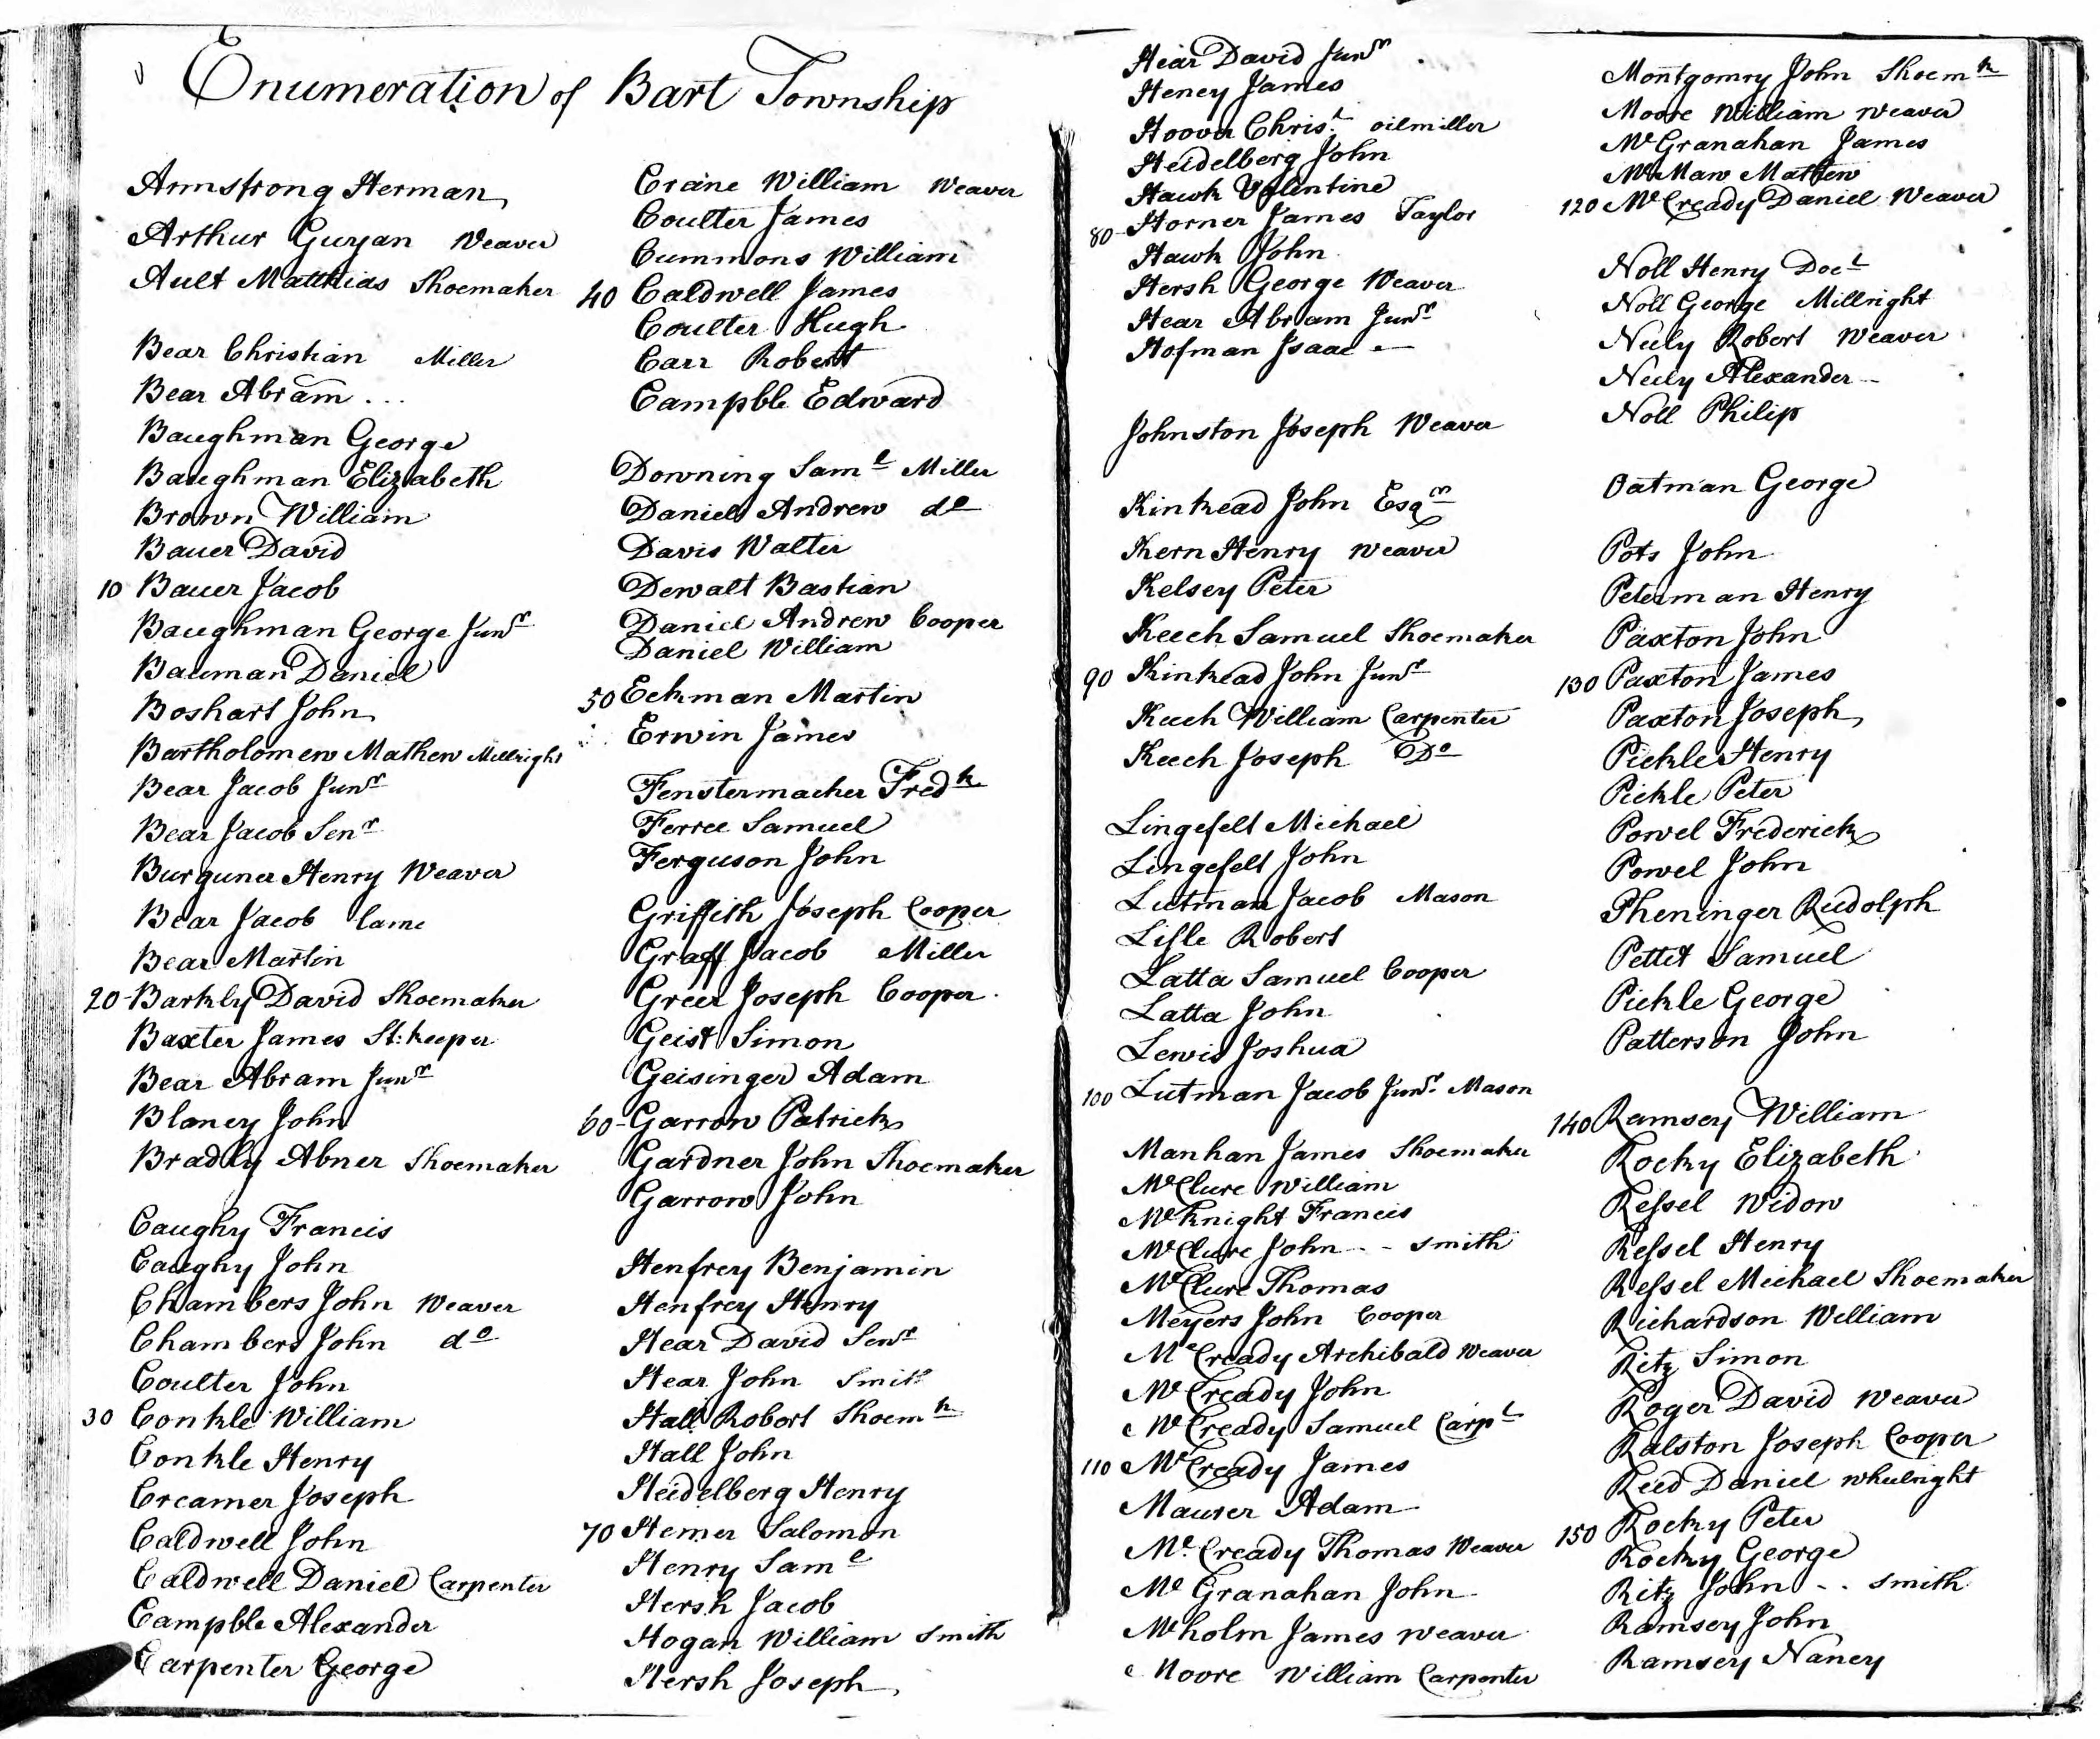 Enumeration of Bart Township
Armstrong Herman
Arthur Guyan Weaver
Ault Matthias Shoemaker
Bear Christian Miller
Bear Abram ...
Baughman George
Baughman Elizabeth
Brown William
Bauer David
10 Bauer Jacob
Baughman George Junr
Bauman Daniel
Boshart John
Bartholomew Mathew Millright
Bear Jacob Junr
Bear Jacob Senr
Burguner Henry Weaver
Bear Jacob lame
Bear Martin
20 Barkly David Shoemaker
Baxter James St: keeper
Bear Abram Junr
Blaney John
Bradly Abner Shoemaker
Caughy Francis
Caughy John
Chambers John Weaver
Chambers John do
Coulter John
30 Conkle William
Conkle Henry
Creamer Joseph
Caldwell John
Caldwell Daniel Carpenter
Campble Alexander
Carpenter George
Craine William Weaver
Coulter James
Cummons William
40 Caldwell James
Coulter Hugh
Carr Robert
Campble Edward
Downing Saml Miller
Daniel Andrew do
Davis Walter
Dewalt Bastian
Daniel Andrew Cooper
Daniel William
50 Eckman Martin
Erwin James
Fenstermacher Fredk
Ferree Samuel
Ferguson John
Griffith Joseph Cooper
Graff Jacob Miller
Greer Joseph Cooper
Geist Simon
Geisinger Adam
60 Garrow Patrick
Gardner John Shoemaker
Garrow John
Henfrey Benjamin
Henfrey Henry
Hear David Senr
Hear John Smith
Hall Robert Shoemk
Hall John
Heidelberg Henry
70 Hemer Salomon
Henry Saml
Hersh Jacob
Hogan William Smith
Hersh Joseph
Hear David Junr
Heney James
Hoover Christ oilmiller
Heidelberg John
Hawk Valentine
80 Horner James Taylor
Hawk John
Hersh George Weaver
Hear Abram Junr
Hofman Isaac
Johnston Joseph Weaver
Kinkead John Esqr
Kern Henry Weaver
Kelsey Peter
Keech Samuel Shoemaker
90 Kinkead John Junr
Keech William Carpenter
Keech Joseph Do
Lingefelt Michael
Lingefelt John
Lutman Jacob Mason
Lisle Robert
Latta Samuel Cooper
Latta John
Lewis Joshua
100 Lutman Jacob Junr Mason
Manhan James Shoemaker
McClure William
McKnight Francis
McClure John - - Smith
McClure Thomas
Meyers John Cooper
McCready Archibald Weaver
McCready John
McCready Samuel Carpt
110 McCready James
Maurer Adam
McCready Thomas Weaver
McGranahan John
Mcholm James weaver
Moore William Carpenter
Montgomry John Shoemk
Moore William weaver
McGranahan James
McMaw Mathew
120 McCready Daniel Weaver
Noll Henry Doct
Noll George Millright
Neely Robert Weaver
Neely Alexander
Noll Philip
Oatman George
Pots John
Peterman Henry
Paxton John
130 Paxton James
Paxton Joseph
Pickle Henry
Pickle Peter
Powel Frederick
Powel John
Pheninger Rudolph
Pettit Samuel
Pickle George
Patterson John
140 Ramsey William
Rocky Elizabeth
Ressel Widow
Ressel Henry
Ressel Michael Shoemaker
Richardson William
Ritz Simon
Roger David Weaver
Ralston Joseph Cooper
Reed Daniel wheelright
150 Rocky Peter
Rocky George
Ritz John - - Smith
Ramsey John
Ramsey Nancy